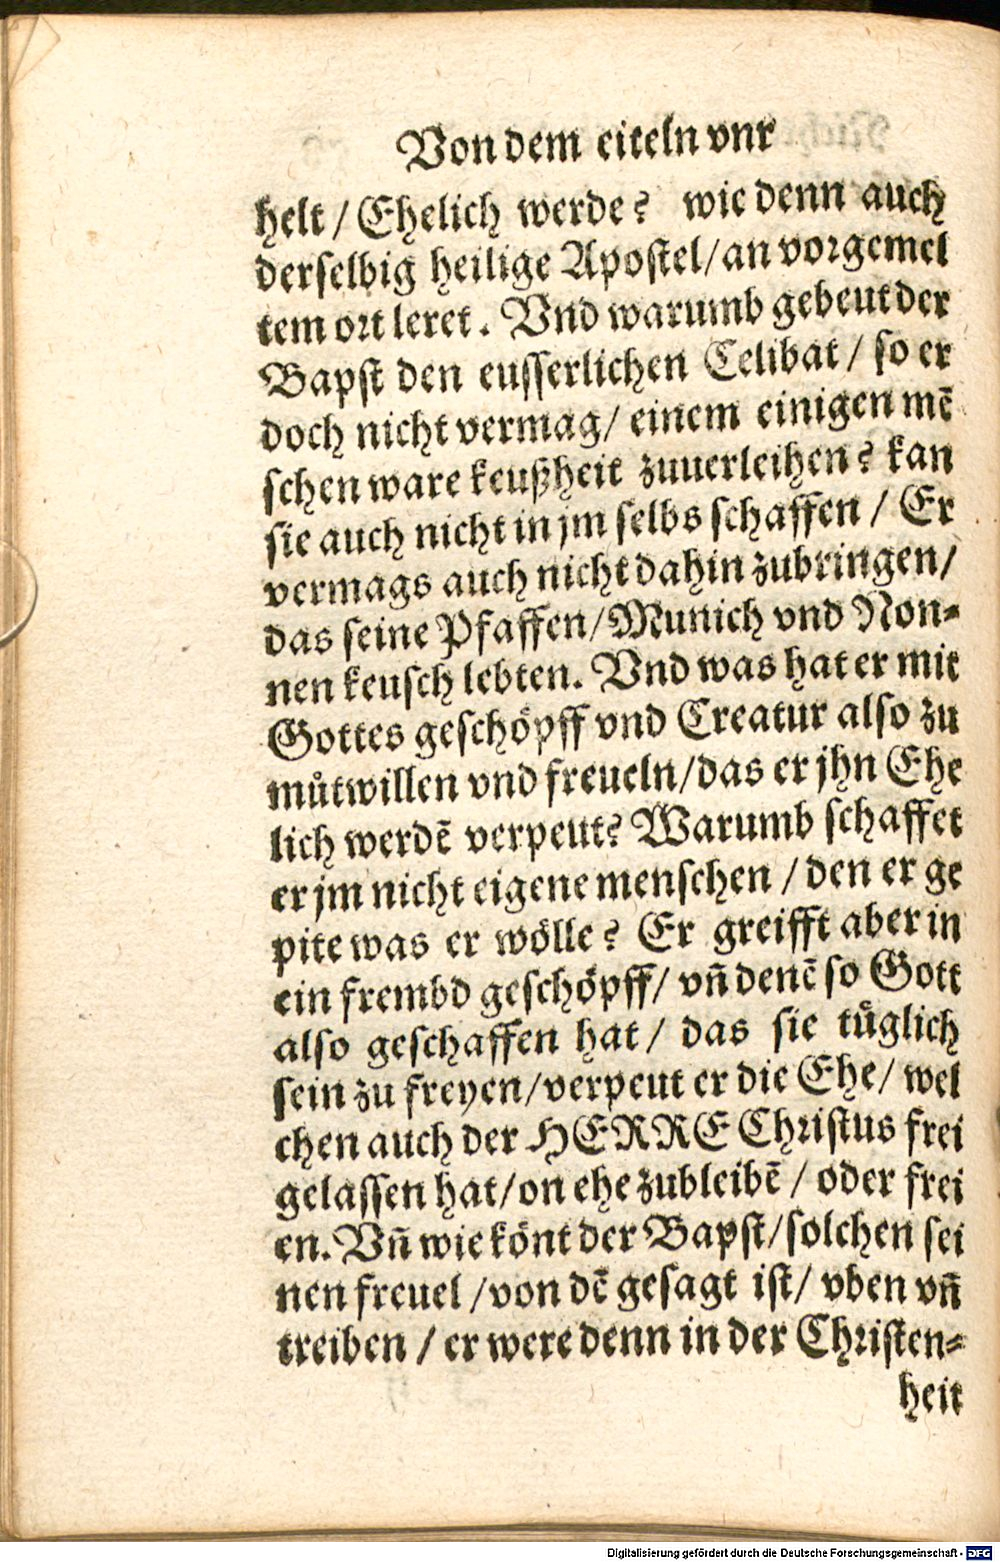 Von dem eiteln vnr
helt / Ehelich werde? wie denn auch
derselbig heilige Apostel/an vorgemel
tem ort leret. Vnd warumb gebeut der
Bapst den eusserlichen Celibat / so er
doch nicht vermag/ einem einigen mẽ
schen ware keußheit zuuerleihen? kan
sie auch nicht in jm selbs schaffen / Er
vermags auch nicht dahin zubringen/
das seine Pfaffen/Munich vnd Non-
nen keusch lebten. Vnd was hat er mit
Gottes geschöpff vnd Creatur also zu
můtwillen vnd freueln/das er jhn Ehe
lich werdẽ verpeut? Warumb schaffet
er jm nicht eigene menschen / den er ge
pite was er wölle? Er greifft aber in
ein frembd geschöpff/ vñ denẽ so Gott
also geschaffen hat / das sie tüglich
sein zu freyen/verpeut er die Ehe/ wel
chen auch der HERRE Christus frei
gelassen hat/on ehe zubleibẽ / oder frei
en. Vñ wie könt der Bapst/solchen sei
nen freuel /von dẽ gesagt ist/ vben vñ
treiben / er were denn in der Christen-
heit
Digitalisierung gefördert durch die Deutsche Forschungsgemeinschaft - DFG